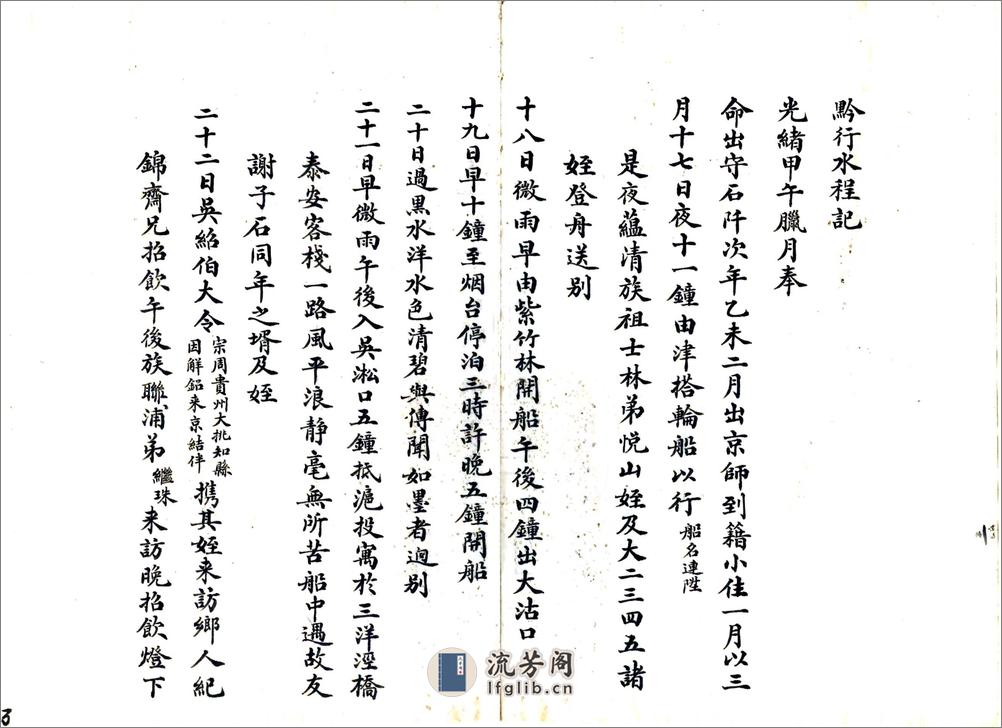 黔行水程記
光緒甲午臘月奉
命出守石阡次年乙未二月出京師到籍小住一月以三
月十七日夜十一鐘由津搭輪船以行船名連陞
是夜蘊清族祖士林弟悅山姪及大二三四五諸
姪登舟送別
十八日微雨早由紫竹林開船午後四鐘出大沽口
十九日早十鐘至烟台停泊三時許晚五鐘開船
二十日過黑水洋水色清碧與傳聞如墨者迥別
二十一日早微雨午後入吳淞口五鐘抵滬投寓於三洋涇橋
泰安客棧一路風平浪静毫無所苦船中遇故友
謝子石同年之壻及姪
二十二日吳紹伯大令宗周貴州大挑知縣因解鉛来京結伴携其姪来訪鄉人紀
錦齋兄招飲午後族聯浦弟繼珠来訪晚招飲燈下
流芳阁
lfglib.cn